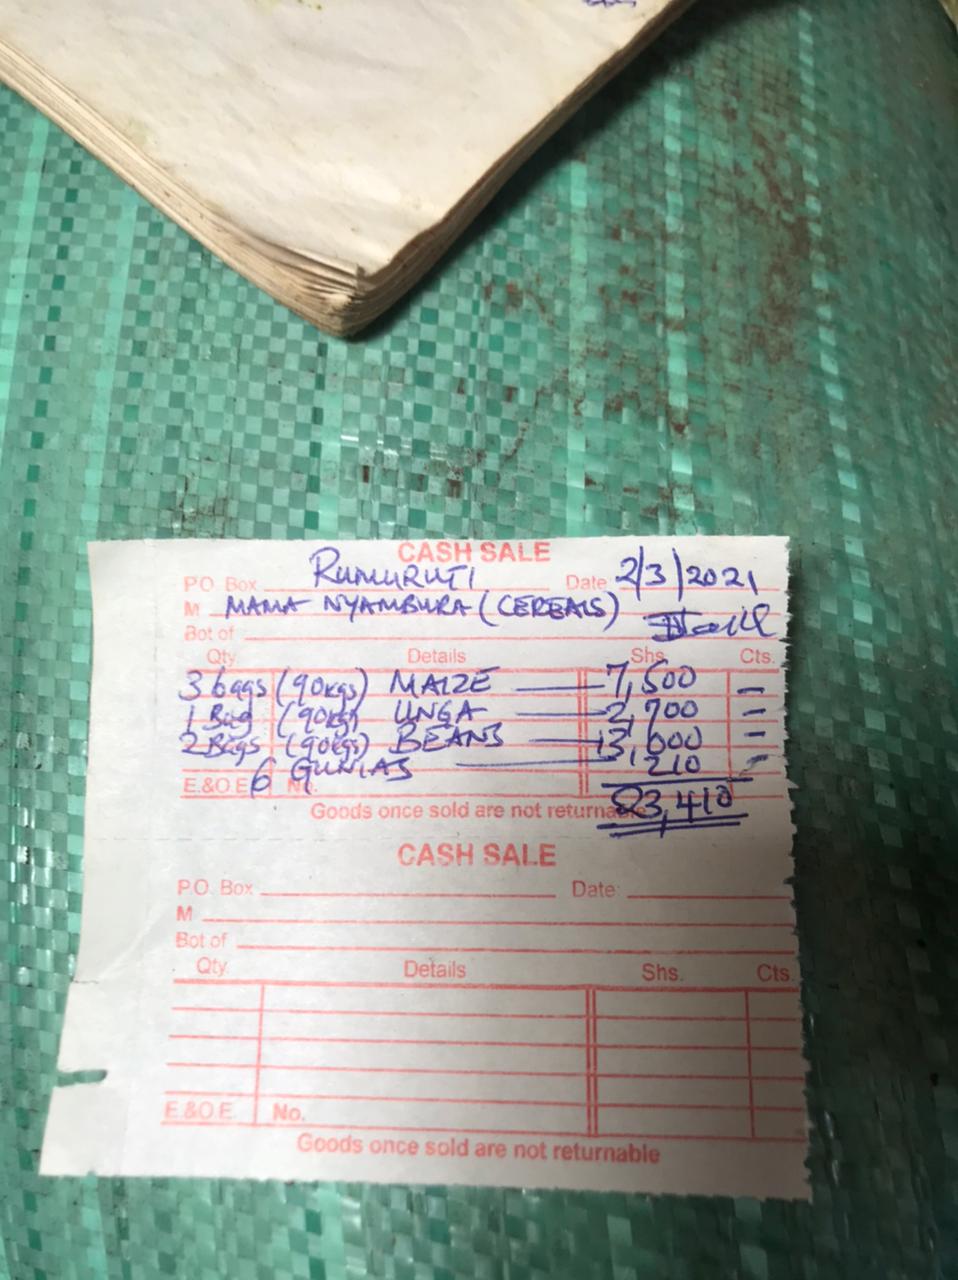 CASH SALE
P.O. Box RUMURUTI Date 2/3/2021
M MAMA NYAMBURA (CEREALS)
Bot of
Qty Details Shs. Cts.
3 bags (90kgs) MAIZE — 7,500 –
1 Bag (90kg) UNGA — 2,700 –
2 Bags (90kgs) BEANS — 13,000 –
6 GUNIAS — 210 –
E.&O.E. No. 23,410
Goods once sold are not returnable
CASH SALE
P.O. Box Date:
M
Bot of
Qty. Details Shs. Cts.
E.&O.E. No.
Goods once sold are not returnable